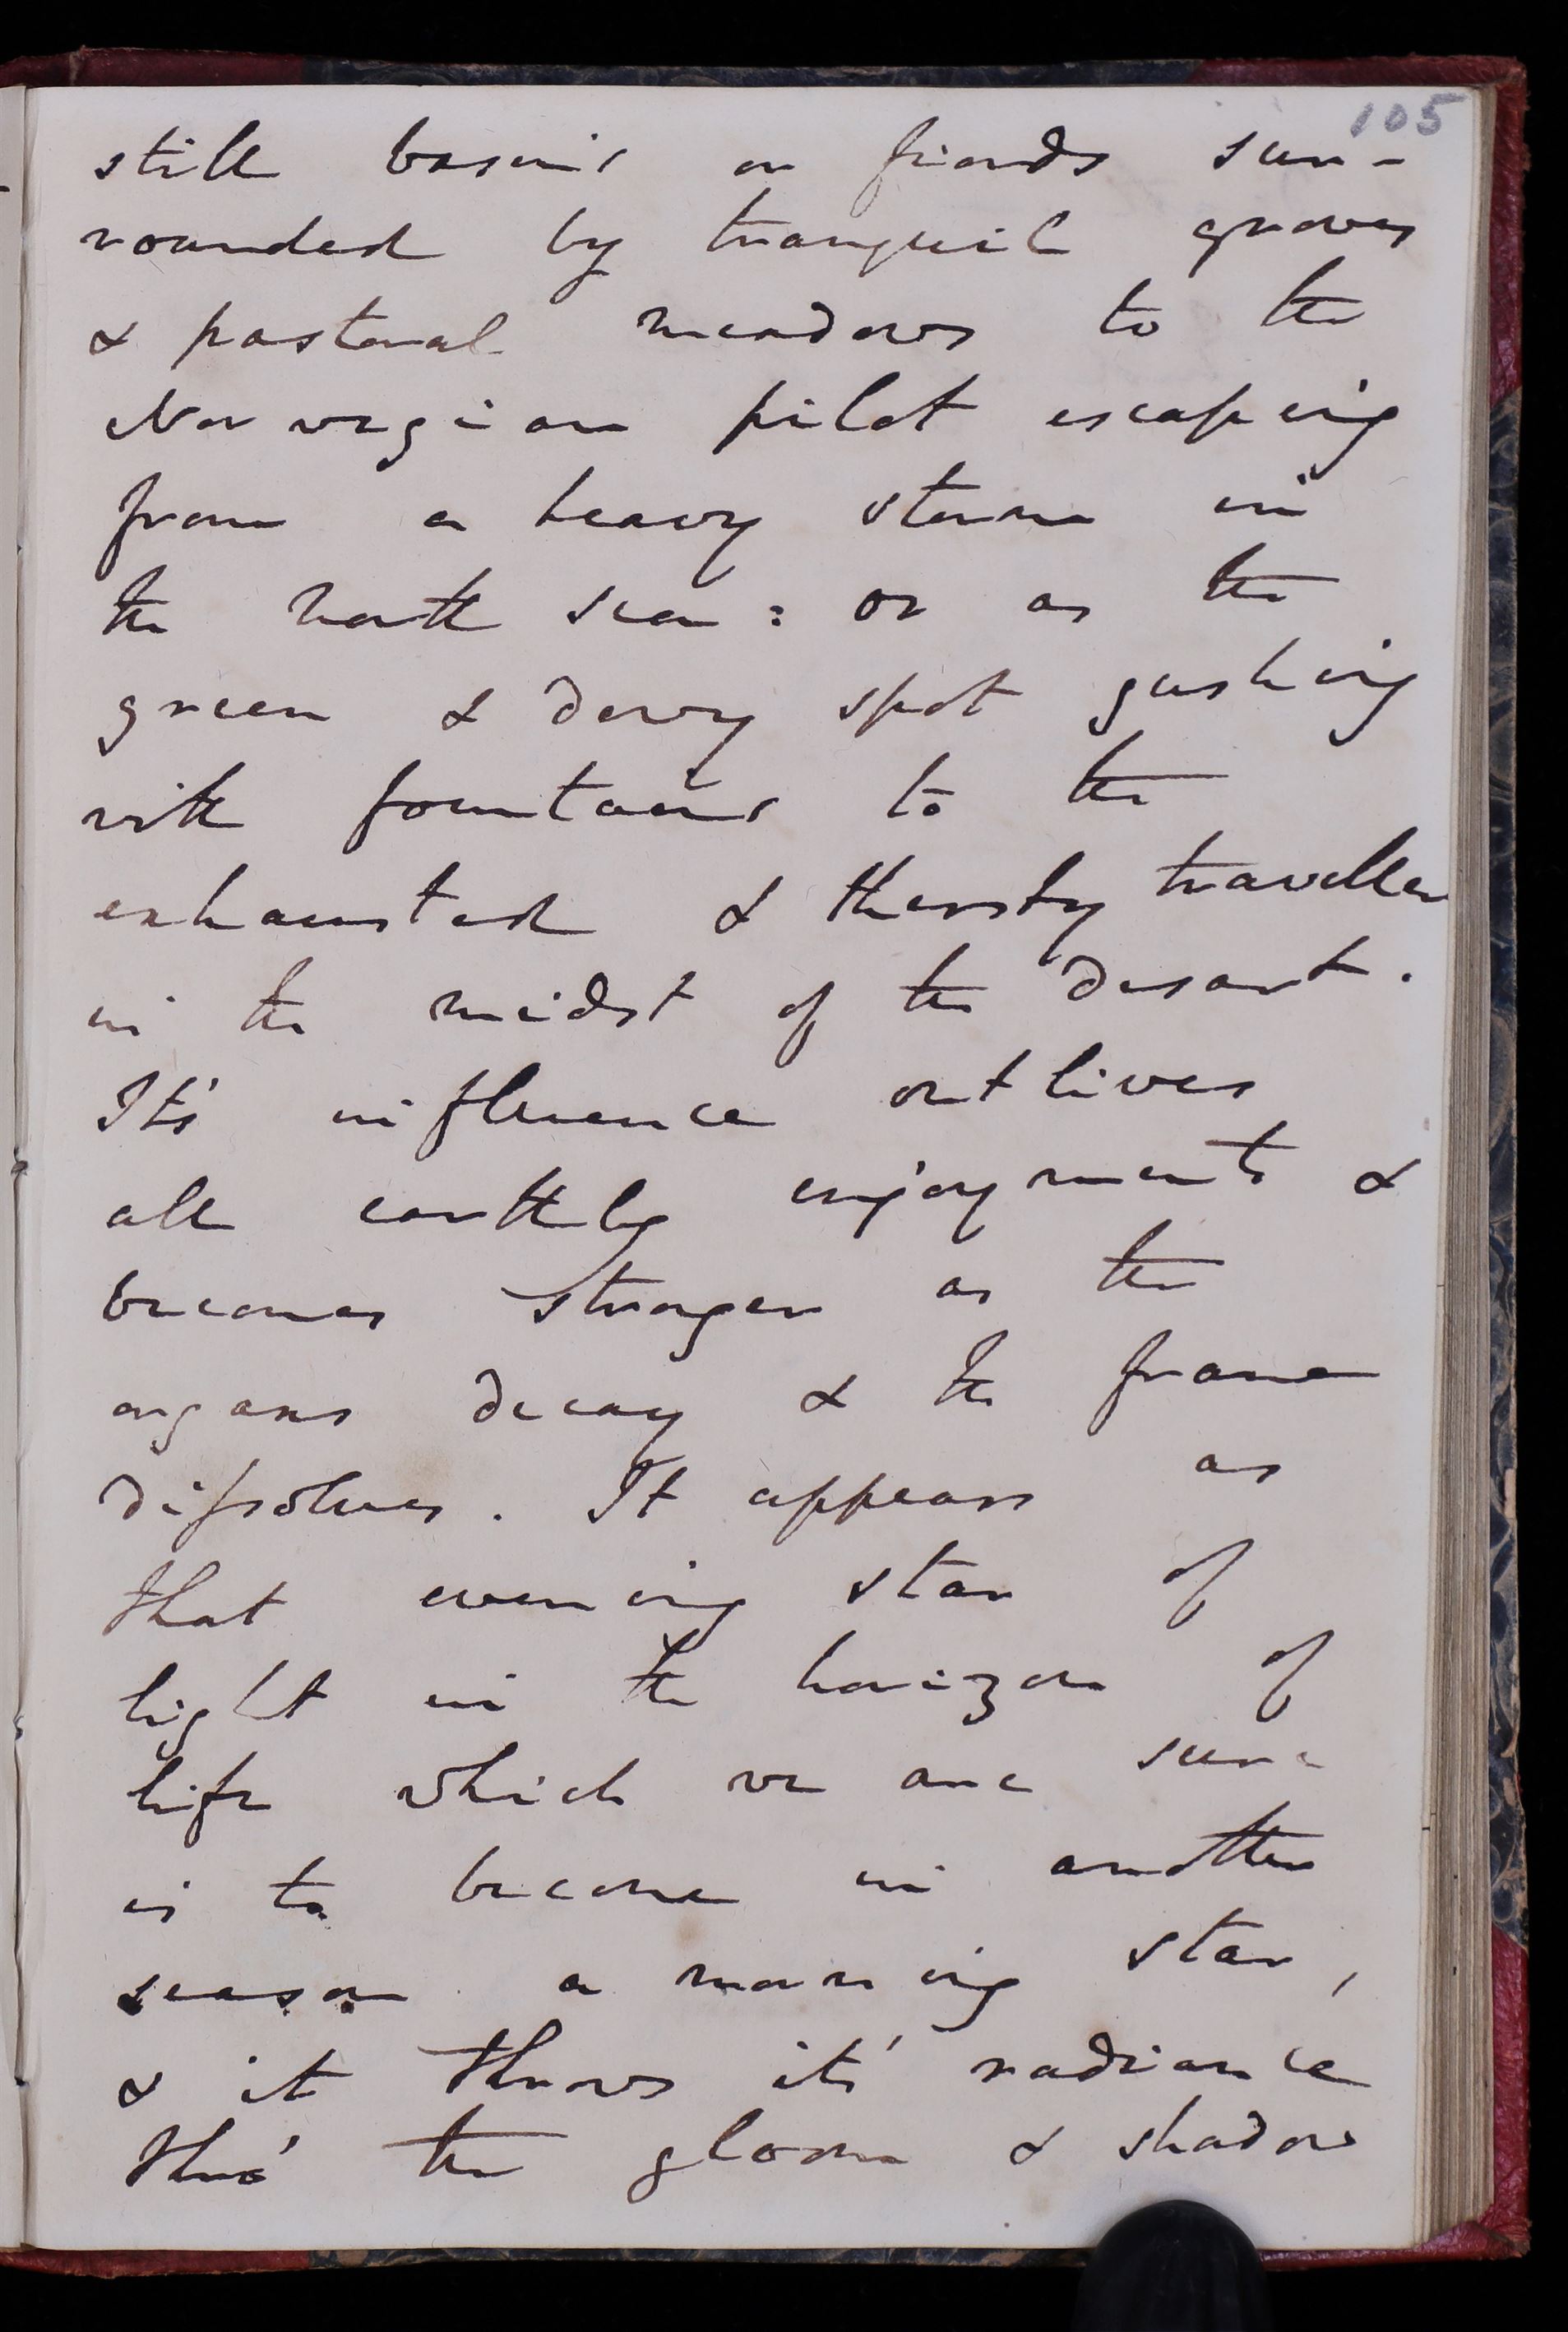 105
still basins or fiords sur-
rounded by tranquil groves
& pastoral meadows to the
Norwegian pilot escaping
from a heavy storm in
the north sea: or as the
green & dewy spot gushing
with fountains to the
exhausted & thersty traveller
in the midst of the desart.
It's influence outlives
all earthly enjoyments &
becomes stronger as the
organs decay & the frame
dissolves. It appears as
that evening star of
light in the horizon of
life which we are sure
is to become in another
season a morning star,
& it throws it's radiance
thro' the gloom & shadow